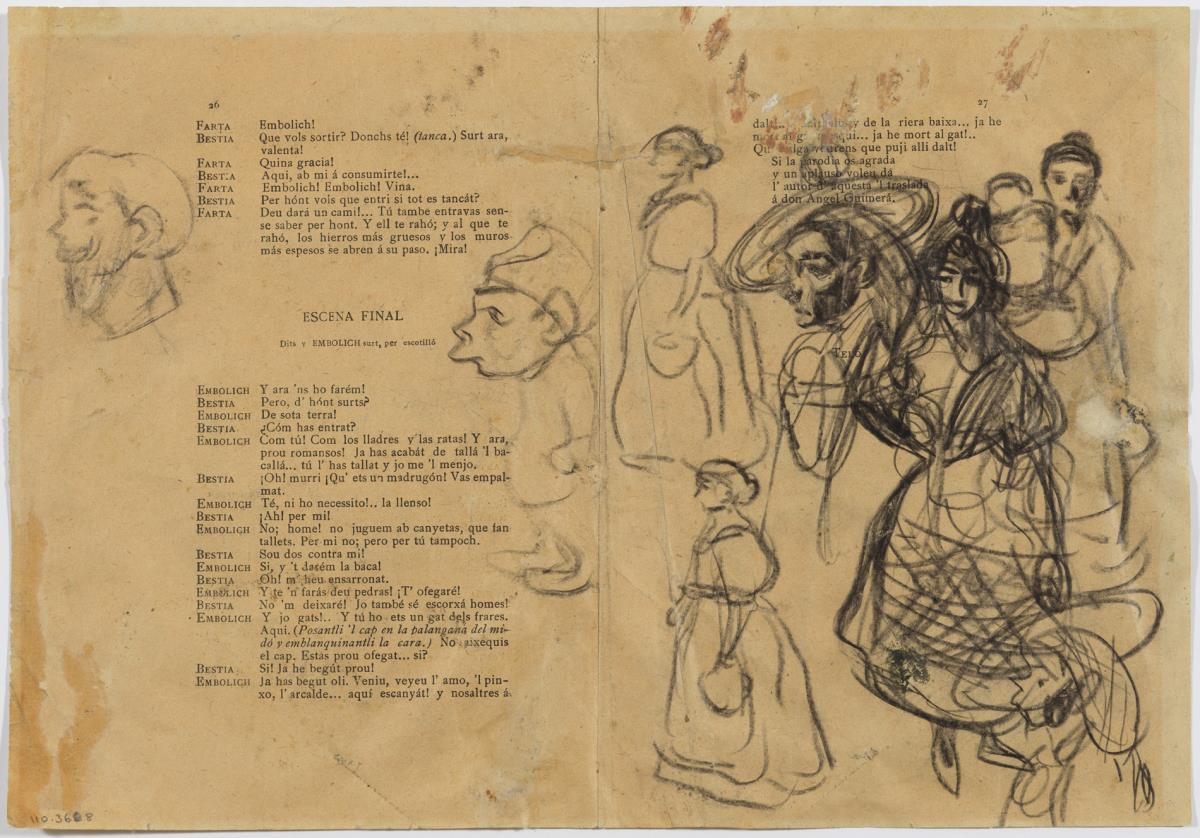 26
FARTA Embolich!
BESTIA Que vols sortir? Donchs té! (tanca.) Surt ara,
valenta!
FARTA Quina gracia!
BESTIA Aquí, ab mi á consumirte!...
FARTA Embolich! Embolich! Vina.
BESTIA Per hónt vols que entri si tot es tancát?
FARTA Deu dará un camí!... Tú tambe entravas sen-
se saber per hont. Y ell te rahó; y al que te
rahó, los hierros más gruesos y los muros
más espesos se abren á su paso. ¡Mira!
ESCENA FINAL
Dits y EMBOLICH surt, per escotilló
EMBOLICH Y ara 'ns ho farém!
BESTIA Pero, d' hónt surts?
EMBOLICH De sota terra!
BESTIA ¿Cóm has entrat?
EMBOLICH Com tú! Com los lladres y las ratas! Y ara,
prou romansos! Ja has acabát de tallá 'l ba-
callá... tú l' has tallat y jo me 'l menjo.
BESTIA ¡Oh! murri ¡Qu' ets un madrugón! Vas empal-
mat.
EMBOLICH Té, ni ho necessito!.. la llenso!
BESTIA ¡Ah! per mi!
EMBOLICH No; home! no juguem ab canyetas, que fan
tallets. Per mi no; pero per tú tampoch.
BESTIA Sou dos contra mi!
EMBOLICH Si, y 't darém la baca!
BESTIA Oh! m' heu ensarronat.
EMBOLICH Y te 'n farás deu pedras! ¡T' ofegaré!
BESTIA No 'm deixaré! Jo també sé escorxá homes!
EMBOLICH Y jo gats!.. Y tú ho ets un gat dels frares.
Aqui. (Posantli 'l cap en la palangana del mi-
dó y emblanquinantli la cara.) No aixequis
el cap. Estás prou ofegat... si?
BESTIA Si! Ja he begút prou!
EMBOLICH Ja has begut oli. Veniu, veyeu l' amo, 'l pin-
xo, l' arcalde... aquí escanyát! y nosaltres á
27
dalt!.. y de la riera baixa... ja he
aqui... ja he mort al gat!..
que puji alli dalt!
Si la parodia os agrada
y un aplauso voleu dá
l' autor d' aquesta 'l traslada
á don Angel Guimerá.
TELÓ
110.3608